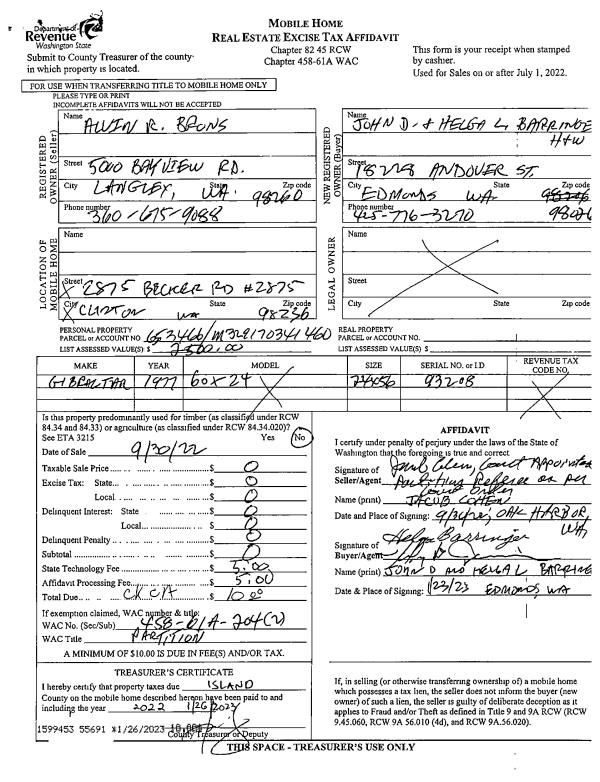 Department of
Revenue
Washington State
Submit to County Treasurer of the county
in which property is located.
MOBILE HOME
REAL ESTATE EXCISE TAX AFFIDAVIT
Chapter 82 45 RCW
Chapter 458-61A WAC
This form is your receipt when stamped
by cashier.
Used for Sales on or after July 1, 2022.
FOR USE WHEN TRANSFERRING TITLE TO MOBILE HOME ONLY
PLEASE TYPE OR PRINT
INCOMPLETE AFFIDAVITS WILL NOT BE ACCEPTED
REGISTERED OWNER (Seller)
Name
ALVIN R. BRONS
Street 5000 BAYVIEW RD.
City LANGLEY, State WA. Zip code 98260
Phone number 360-675-9088
NEW REGISTERED OWNER (Buyer)
Name
JOHN D. & HELGA L. BARRINGE
H+W
Street 18228 ANDOVER ST.
City EDMONDS State WA Zip code
98026
Phone number 425-776-3270
LOCATION OF MOBILE HOME
Name
Street 2875 BECKER RD #2875
City CLINTON State WA Zip code 98236
LEGAL OWNER
Name
Street
City State Zip code
PERSONAL PROPERTY
PARCEL or ACCOUNT NO.
LIST ASSESSED VALUE(S) $ 2500.00
REAL PROPERTY
PARCEL or ACCOUNT NO.
LIST ASSESSED VALUE(S) $
MAKE YEAR MODEL SIZE SERIAL NO. or I.D REVENUE TAX CODE NO.
GIBRALTAR 1977 60x24 9320B
Is this property predominantly used for timber (as classified under RCW
84.34 and 84.33) or agriculture (as classified under RCW 84.34.020)?
See ETA 3215 Yes No
Date of Sale 9/30/22
Taxable Sale Price $ 0
Excise Tax: State $ 0
Local $ 0
Delinquent Interest: State $ 0
Local $ 0
Delinquent Penalty $ 0
Subtotal $ 0
State Technology Fee $ 5.00
Affidavit Processing Fee $ 5.00
Total Due $ 10.00
If exemption claimed, WAC number & title:
WAC No. (Sec/Sub) 458-61A-204(2)
WAC Title PARTITION
A MINIMUM OF $10.00 IS DUE IN FEE(S) AND/OR TAX.
AFFIDAVIT
I certify under penalty of perjury under the laws of the State of
Washington that the foregoing is true and correct.
Signature of
Seller/Agent Court Appointed
Partition Referee as per
Court Order
Name (print) JACOB COHEN
Date and Place of Signing: OAK HARBOR,
WA,
Signature of
Buyer/Agent Helga Barringer
Name (print) JOHN D AND HELGA L BARRINGE
Date & Place of Signing: 1/23/23 EDMONDS WA
TREASURER'S CERTIFICATE
I hereby certify that property taxes due ISLAND
County on the mobile home described hereon have been paid to and
including the year 2022 1/26/2023
1599453 55691 1/26/2023 10.00
County Treasurer or Deputy
If, in selling (or otherwise transferring ownership of) a mobile home
which possesses a tax lien, the seller does not inform the buyer (new
owner) of such a lien, the seller is guilty of deliberate deception as it
applies to Fraud and/or Theft as defined in Title 9 and 9A RCW (RCW
9.45.060, RCW 9A 56.010 (4d), and RCW 9A.56.020).
THIS SPACE - TREASURER'S USE ONLY